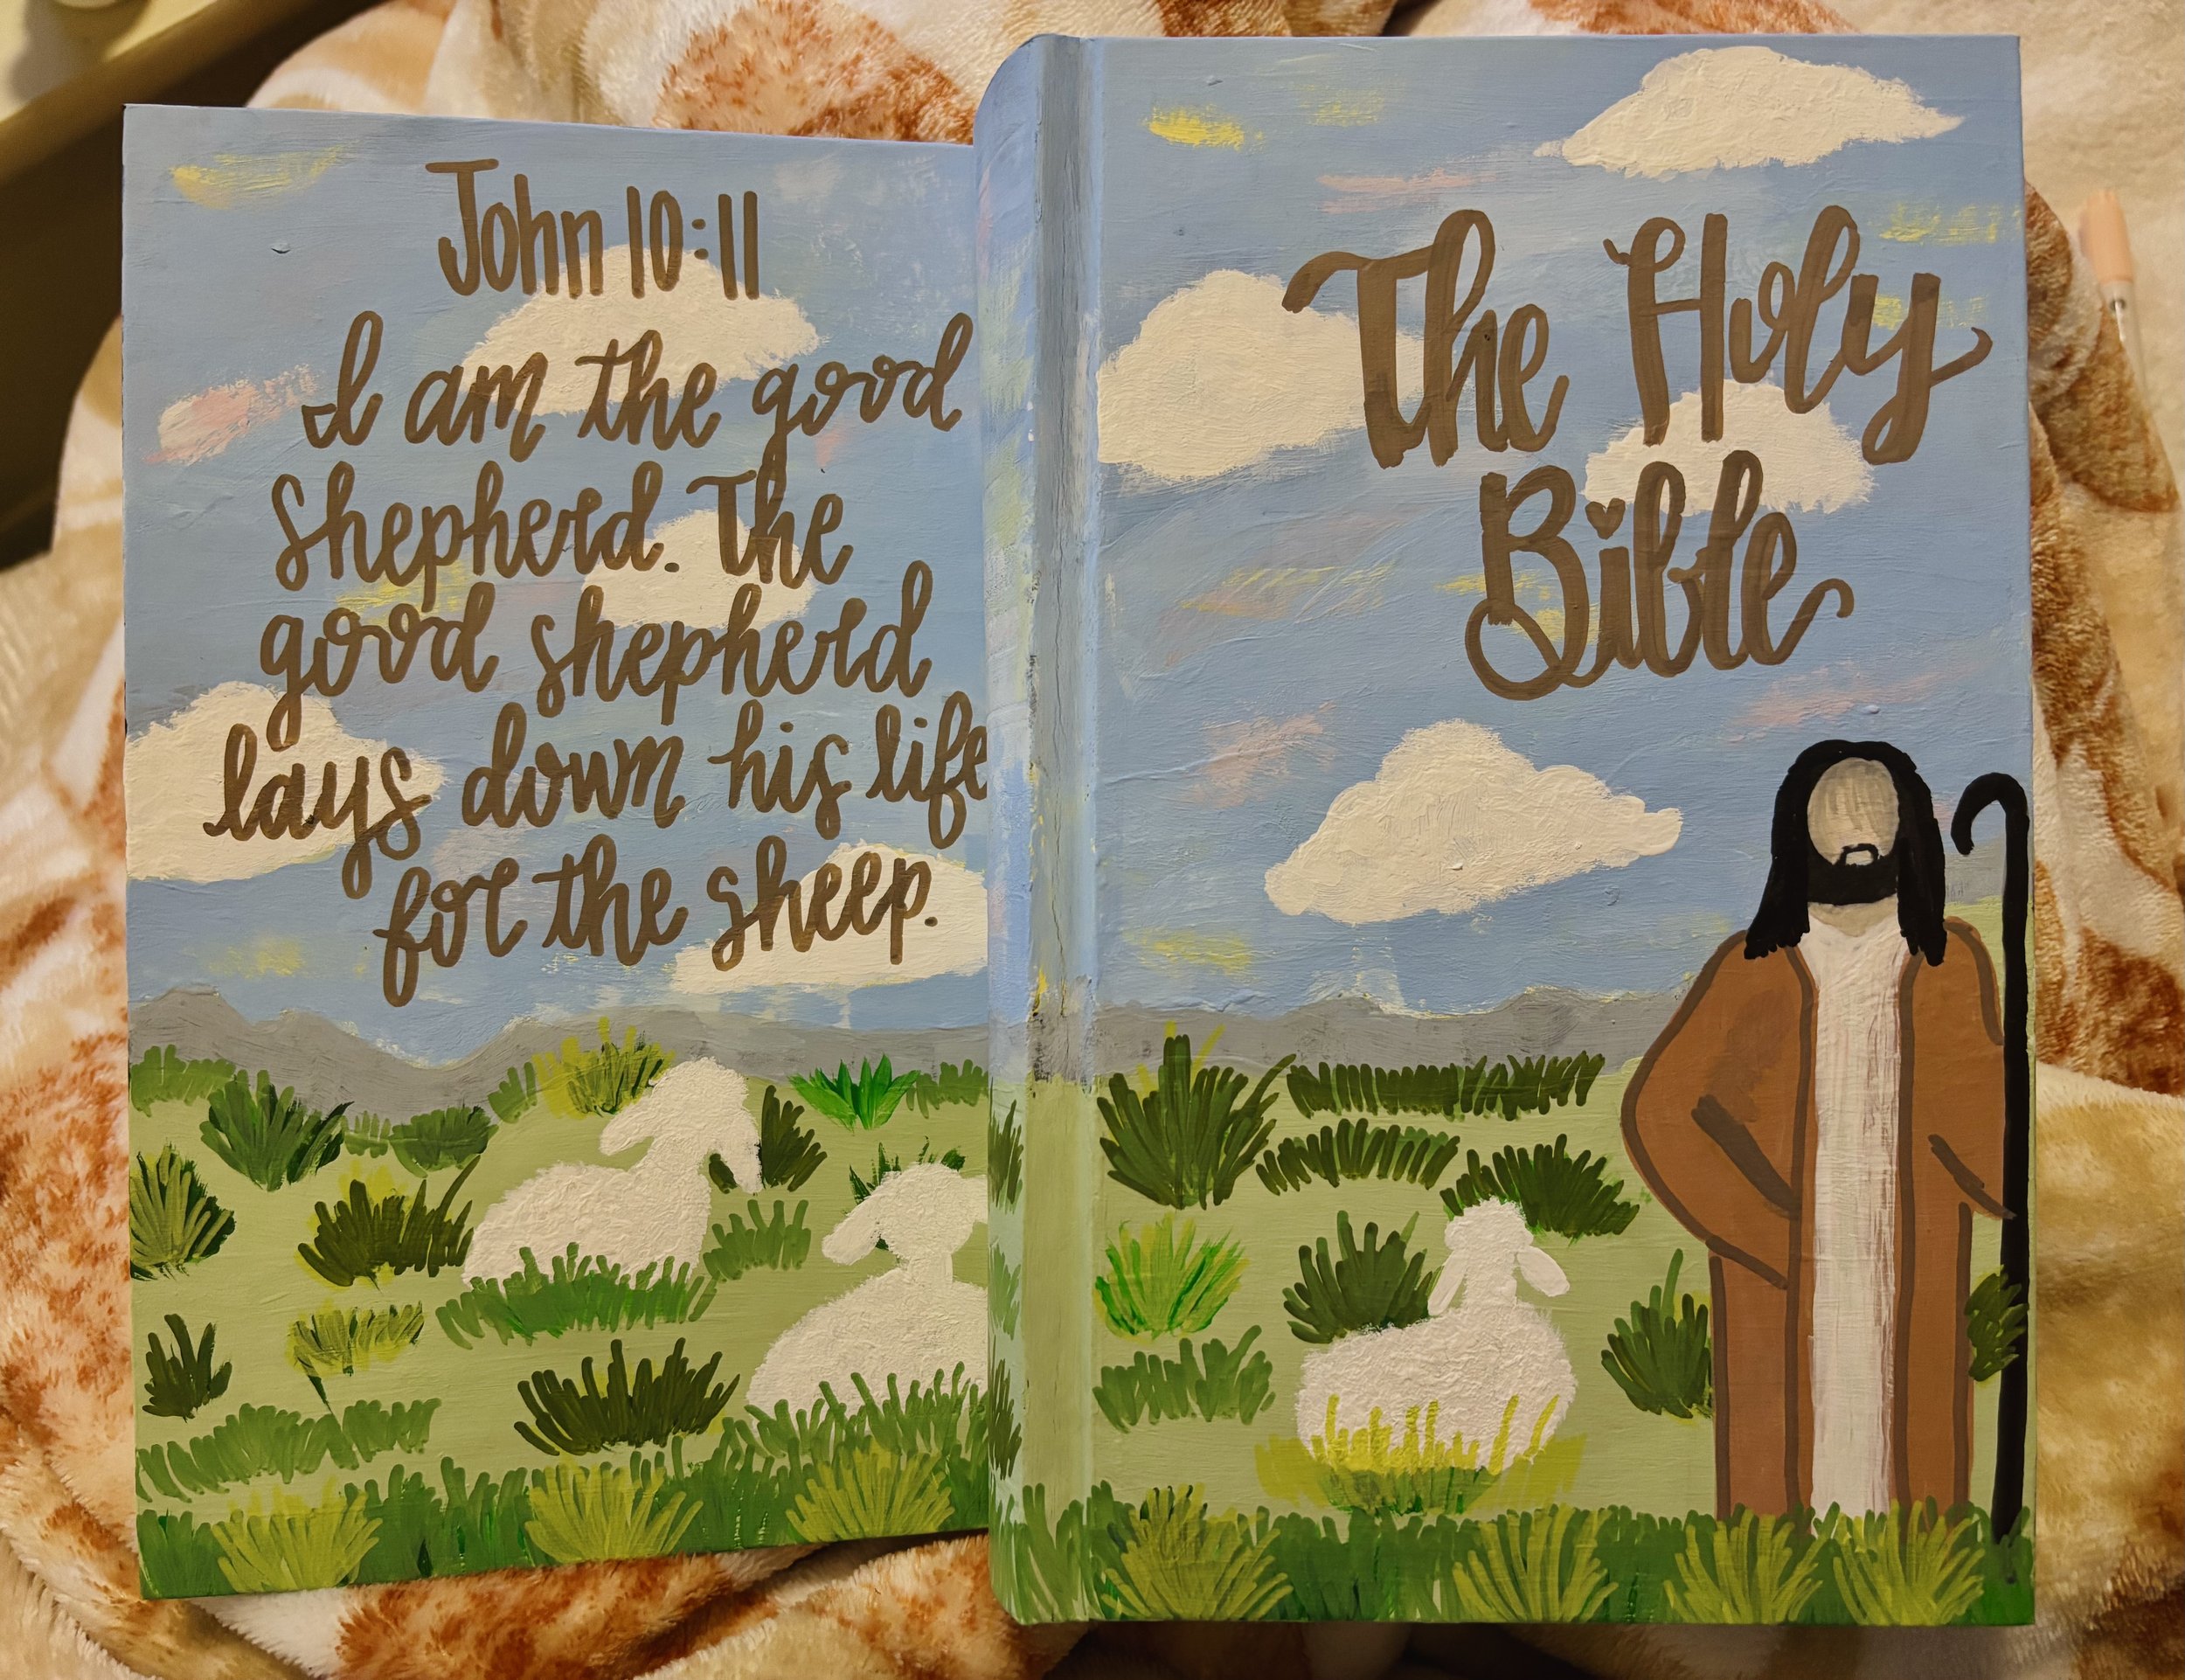 John 10:11
I am the good
shepherd. The
good shepherd
lays down his life
for the sheep.
The Holy
Bible